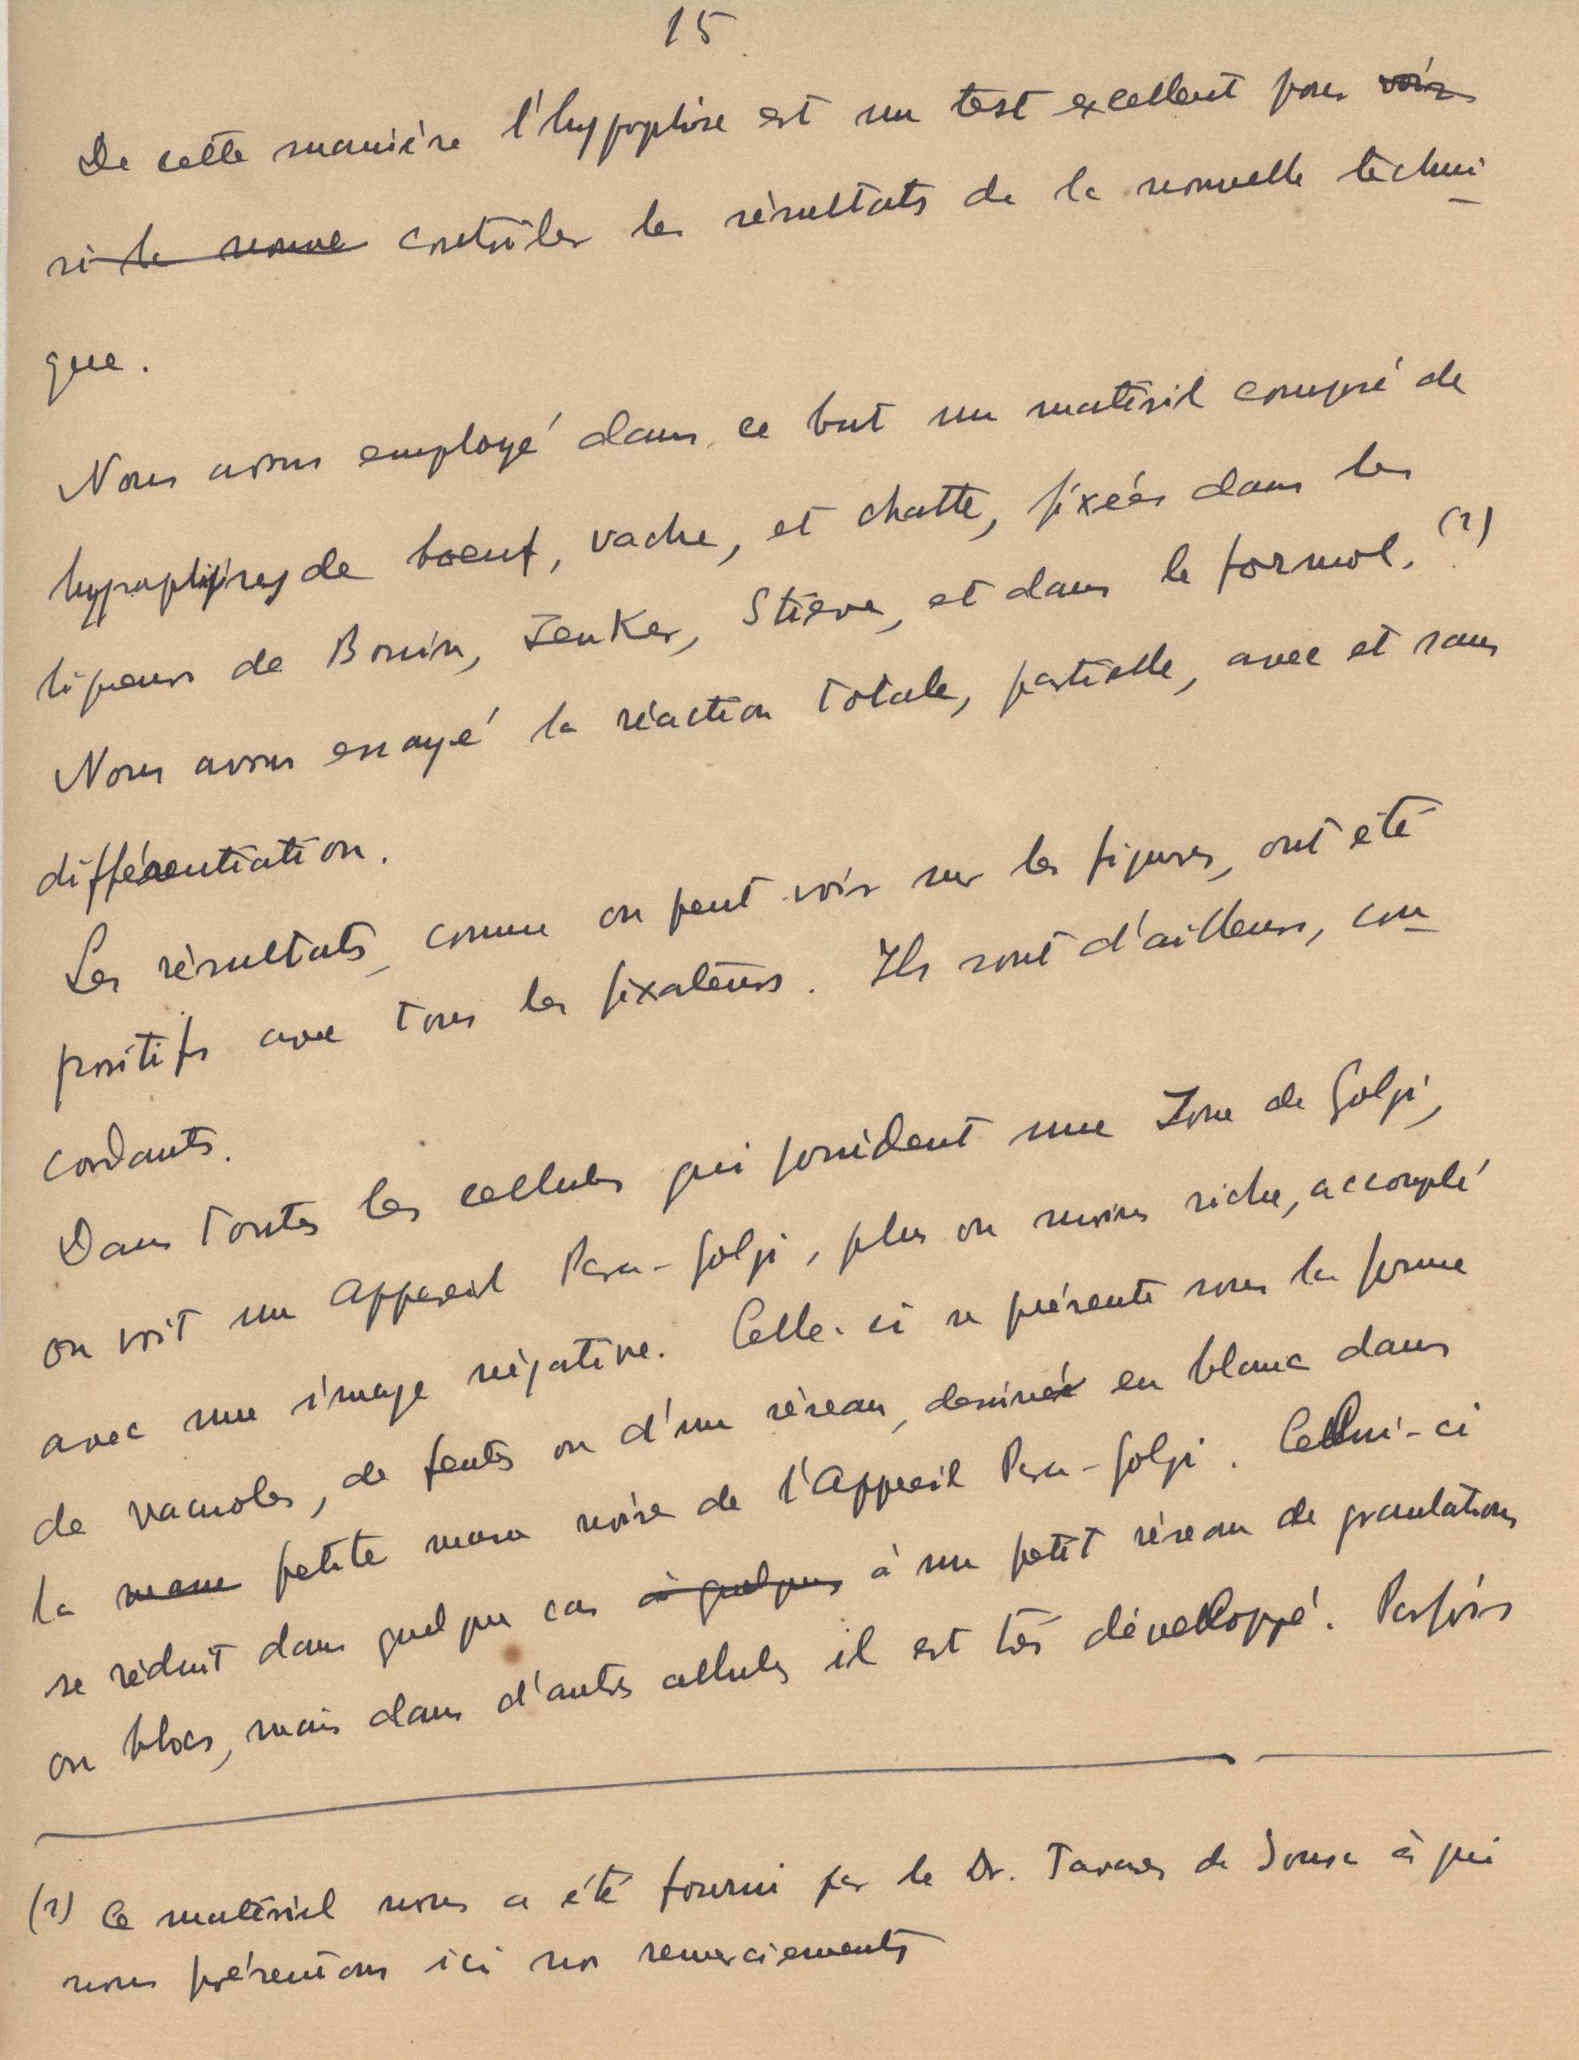 15
De cette manière l'hypophise est un test excellent pour voir
si la nouve contrôler les résultats de la nouvelle techni
que.
Nous avons employé dans ce but un matériel composé de
hypophises de boeuf, vache, et chatte, fixées dans les
liqueurs de Bouin, Zenker, Stieve, et dans le formol. (1)
Nous avons essayé la réaction totale, partielle, avec et sans
différentiation.
Les résultats, comme on peut voir sur les figures, ont été
positifs avec tous les fixateurs. Ils sont d'ailleurs, con
cordants.
Dans toutes les cellules qui possident une Zone de Golgi,
on voit un appareil Para-Golgi, plus ou moins riche, accouplé
avec une image négative. Celle-ci se présente sous la forme
de vacuoles, de fentes ou d'un réseau, dessiné en blanc dans
la masse petite masse noire de l'Appareil Para-Golgi. Cellui-ci
se réduit dans quelque cas à quelques à un petit réseau de granulations
ou blocs, mais dans d'autres cellules il est très développé. Parfois
(1) Ce matériel nous a été fourni par le Dr. Tavares de Sousa à qui
nous présentons ici nos remerciements